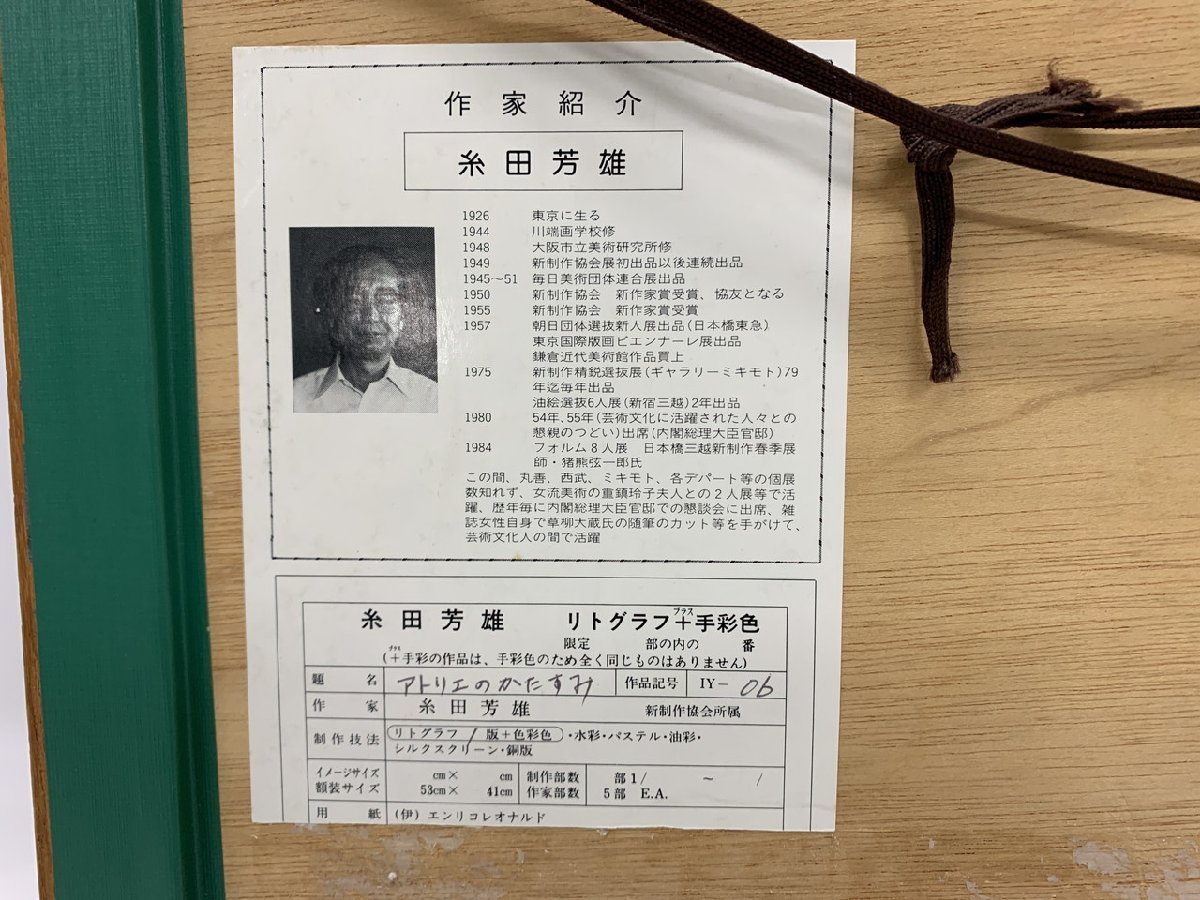 作家紹介
糸田芳雄
1926 東京に生る
1944 川端画学校修
1948 大阪市立美術研究所修
1949 新制作協会展初出品以後連続出品
1945~51 毎日美術団体連合展出品
1950 新制作協会 新作家賞受賞、協友となる
1955 新制作協会 新作家賞受賞
1957 朝日団体選抜新人展出品(日本橋東急)
東京国際版画ビエンナーレ展出品
鎌倉近代美術館作品買上
1975 新制作精鋭選抜展(ギャラリーミキモト)79
年迄毎年出品
油絵選抜6人展(新宿三越)2年出品
1980 54年、55年(芸術文化に活躍された人々との
懇親のつどい)出席(内閣総理大臣官邸)
1984 フォルム8人展 日本橋三越新制作春季展
師・猪熊弦一郎氏
この間、丸善、西武、ミキモト、各デパート等の個展
数知れず、女流美術の重鎮玲子夫人との2人展等で活
躍、歴年毎に内閣総理大臣官邸での懇談会に出席、雑
誌女性自身で草柳大蔵氏の随筆のカット等を手がけて、
芸術文化人の間で活躍
糸田芳雄 リトグラフ+プラス手彩色
限定 部の内の 番
(+プラス手彩の作品は、手彩色のため全く同じものはありません)
題名 アトリエのかたすみ 作品記号 IY-06
作家 糸田芳雄 新制作協会所属
制作技法 リトグラフ / 版+色彩色・水彩・パステル・油彩・
シルクスクリーン・銅版
イメージサイズ cm× cm 制作部数 部1/ ~ /
額装サイズ 53cm× 41cm 作家部数 5部 E.A.
用紙 (伊)エンリコレオナルド